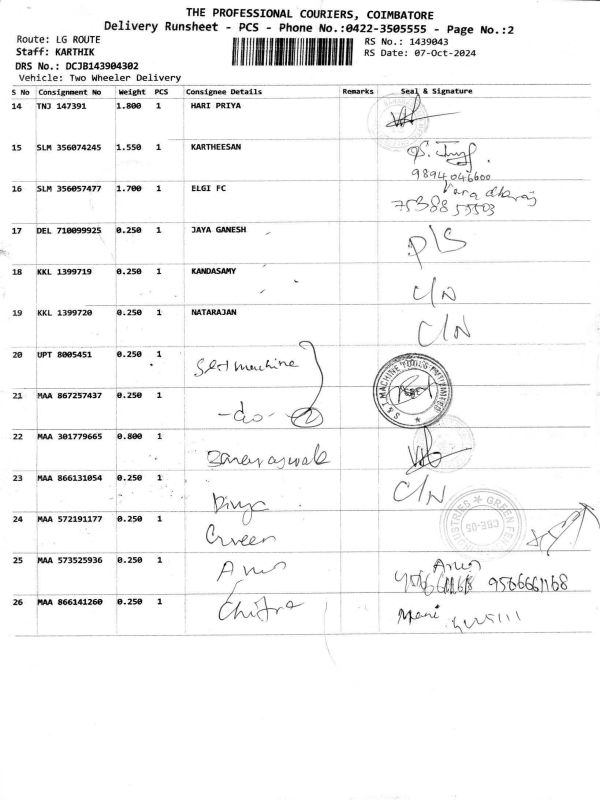 THE PROFESSIONAL COURIERS, COIMBATORE
Delivery Runsheet - PCS - Phone No.:0422-3505555 - Page No.:2
Route: LG ROUTE RS No.: 1439043
Staff: KARTHIK RS Date: 07-Oct-2024
DRS No.: DCJB143904302
Vehicle: Two Wheeler Delivery
S No Consignment No Weight PCS Consignee Details Remarks Seal & Signature
14 TNJ 147391 1.800 1 HARI PRIYA
15 SLM 356074245 1.550 1 KARTHEESAN
9894046600
16 SLM 356057477 1.700 1 ELGI FC
75388 55503
17 DEL 710099925 0.250 1 JAYA GANESH P/S
18 KKL 1399719 0.250 1 KANDASAMY C/N
19 KKL 1399720 0.250 1 NATARAJAN C/N
20 UPT 8005451 0.250 1 S&T machine
21 MAA 867257437 0.250 1 -do- 2
22 MAA 301779665 0.800 1
23 MAA 866131054 0.250 1 Divya C/N
24 MAA 572191177 0.250 1 Green
GREEN
CBE-05
25 MAA 573525936 0.250 1 Arun Arun
9566661168
26 MAA 866141260 0.250 1 Chitra Mani